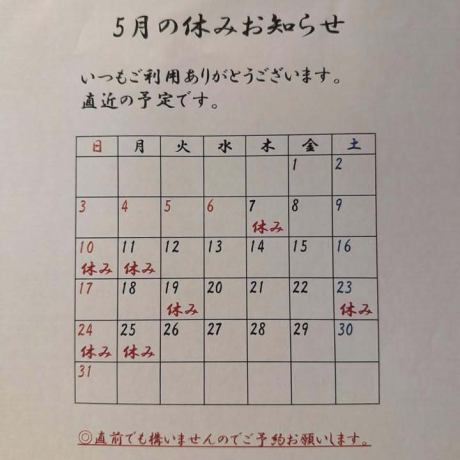 5月の休みお知らせ
いつもご利用ありがとうございます。
直近の予定です。
日 月 火 水 木 金 土
1 2
3 4 5 6 7 8 9
休み
10 11 12 13 14 15 16
休み 休み
17 18 19 20 21 22 23
休み 休み
24 25 26 27 28 29 30
休み 休み
31
◎直前でも構いませんのでご予約お願いします。